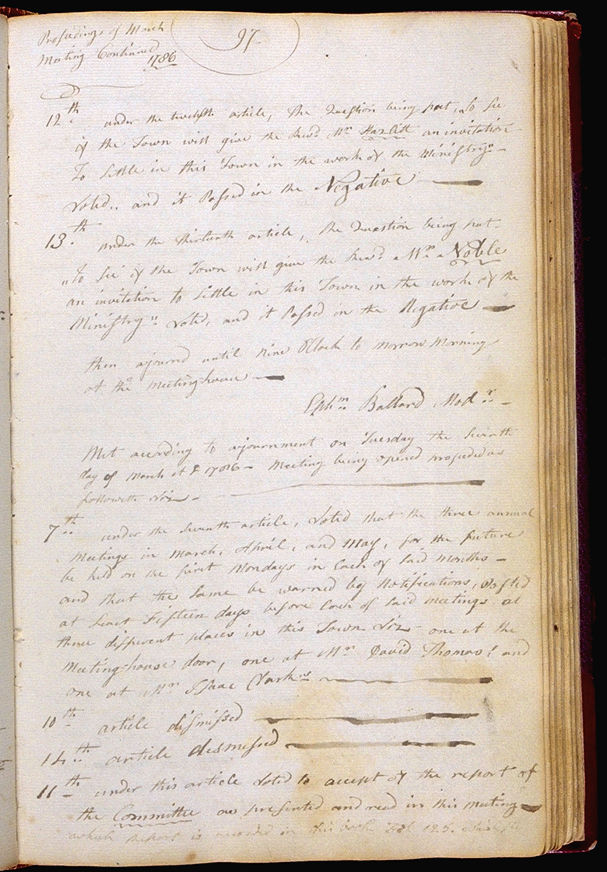 Proceedings of March
Meeting Continued
1786
97
12th under the twelfth article, The Question being put, To See
if the Town will give the Revd. Mr. Hazlitt an invitation
To Settle in this Town in the work of the Ministry,
Voted, and it Passed in the Negative
13th under the thirteenth article, the Question being put
To See if the Town will give the Revd. Mr. Noble
an invitation to Settle in this Town in the work of the
Ministry, Voted, and it Passed in the Negative
then ajourned until Nine OClock to morrow Morning
at the meetinghouse
Ephm. Ballard Modr.
Met according to ajournment on Tuesday the Seventh
day of March 1786 Meeting being opened proseded as
followeth Viz
7th under the Seventh article, Voted that the three annual
Meetings in March, April, and May, for the future
be held on the first Mondays in Each of Said Months
and that the Same be warned by Notifications, Posted
at least Fifteen days before Each of Said meetings at
three different places in this Town Viz one at the
Meetinghouse door, one at Mr. David Thomas's and
one at Mr. Isaac Clark's
10th article dismissed
14th article dismessed
11th under this article Voted to accept of the report of
the Committee as presented and read in this meeting
which report is recorded in this book